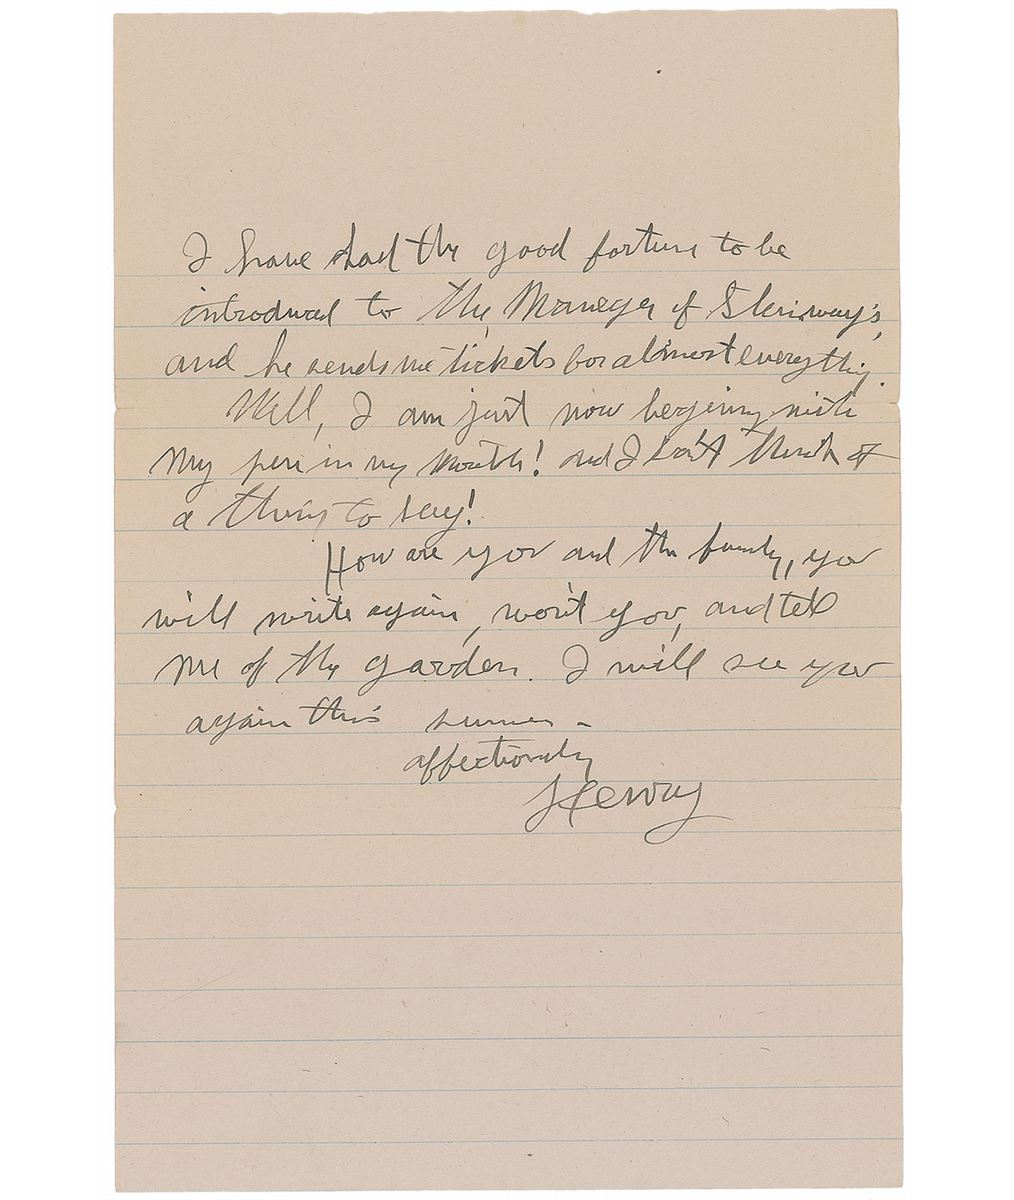 I have had the good fortune to be
introduced to the Manager of Steinway's,
and he sends me tickets for almost everything.
Well, I am just now begining with
my pen in my mouth! and I can't think of
a thing to say!
How are you and the family, you
will write again, won't you, and tell
me of the garden. I will see you
again this summer –
affectionately
Henry